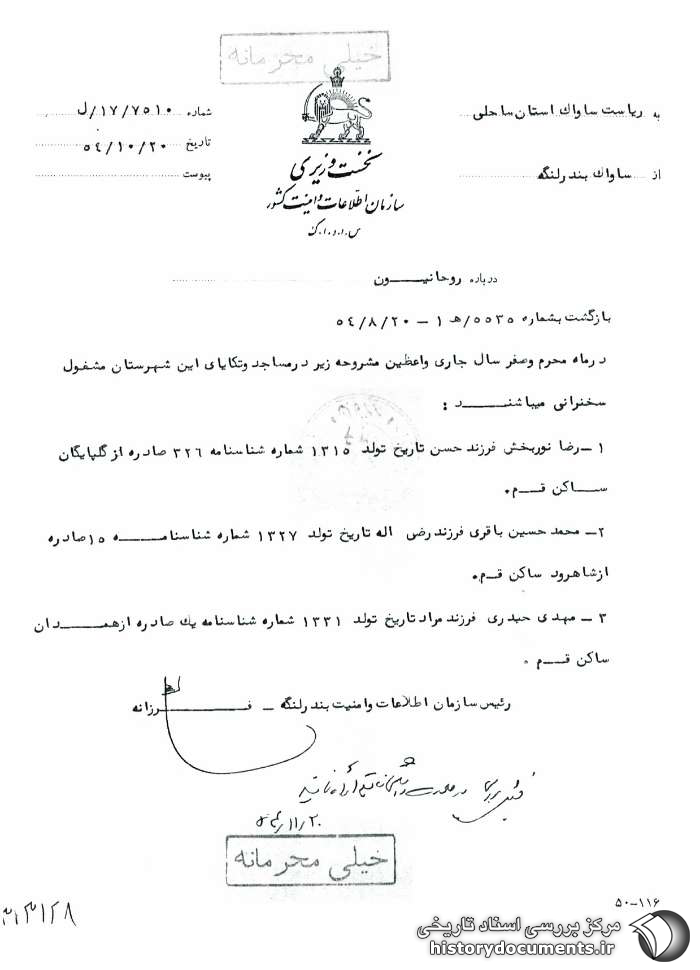 خیلی محرمانه
به ریاست ساواك استان ساحلی
از ساواك بندرلنگه
شماره ۱۷/۷۵۱۰/ل
تاریخ ۵٤/۱۰/۲۰
پیوست
نخست وزیری
سازمان اطلاعات و امنیت کشور
س.ا.و.ا.ک
درباره روحانیــــون
بازگشت بشماره ۵۵۳۵/هـ ۱ – ۵٤/۸/۲۰
درماه محرم وصفر سال جاری واعظین مشروحه زیر درمساجد وتکایای این شهرستان مشغول
سخنرانی میباشنــــــد :
۱ – رضا نوربخش فرزند حسن تاریخ تولد ۱۳۱۵ شماره شناسنامه ۳۲٦ صادره از گلپایگان
ســاکن قــم.
۲– محمد حسین باقری فرزند رضی اله تاریخ تولد ۱۳۲۷ شماره شناسنامـــه ۱۵ صادره
ازشاهرود ساکن قـم.
۳ – مهدی حیدری فرزند مراد تاریخ تولد ۱۳۳۱ شماره شناسنامه یك صادره ازهمــدان
ساکن قــم .
رئیس سازمان اطلاعات وامنیت بندرلنگه – فــــــــرزانه
۵٤/۱۱/۲۰
خیلی محرمانه
۵۰–۱۱۶
مرکز بررسی اسناد تاریخی
historydocuments.ir